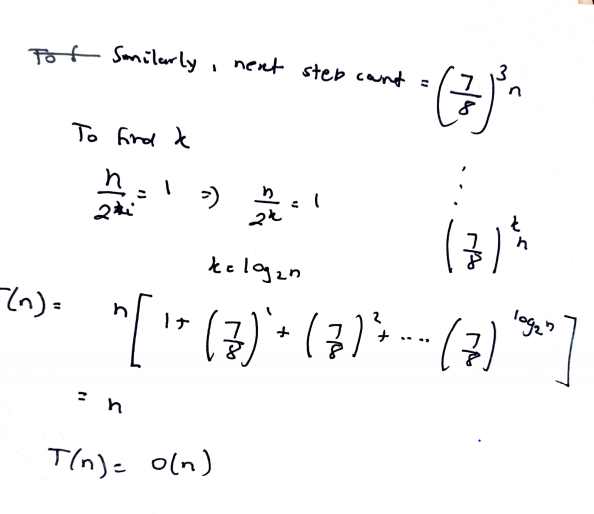 Similarly, next step count = (7/8)^3 n
To find k
n/2^i = 1 => n/2^k = 1
⋮
(7/8)^k n
k = log₂n
T(n) = n[1 + (7/8)^1 + (7/8)^2 + .... (7/8)^log₂n]
= n
T(n) = O(n)